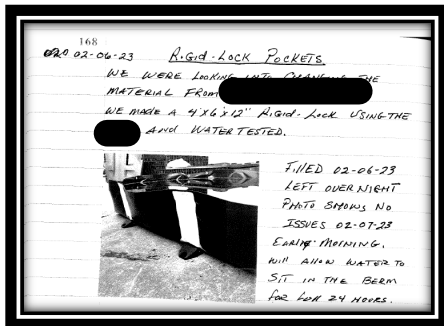 168
02-06-23 RIGID-LOCK POCKETS
WE WERE LOOKING INTO CHANGING THE
MATERIAL FROM
WE MADE A 4'X6'X12" RIGID-LOCK USING THE
AND WATER TESTED.
FILLED 02-06-23
LEFT OVERNIGHT
PHOTO SHOWS NO
ISSUES 02-07-23
EARLY MORNING.
WILL ALLOW WATER TO
SIT IN THE BERM
FOR FULL 24 HOURS.